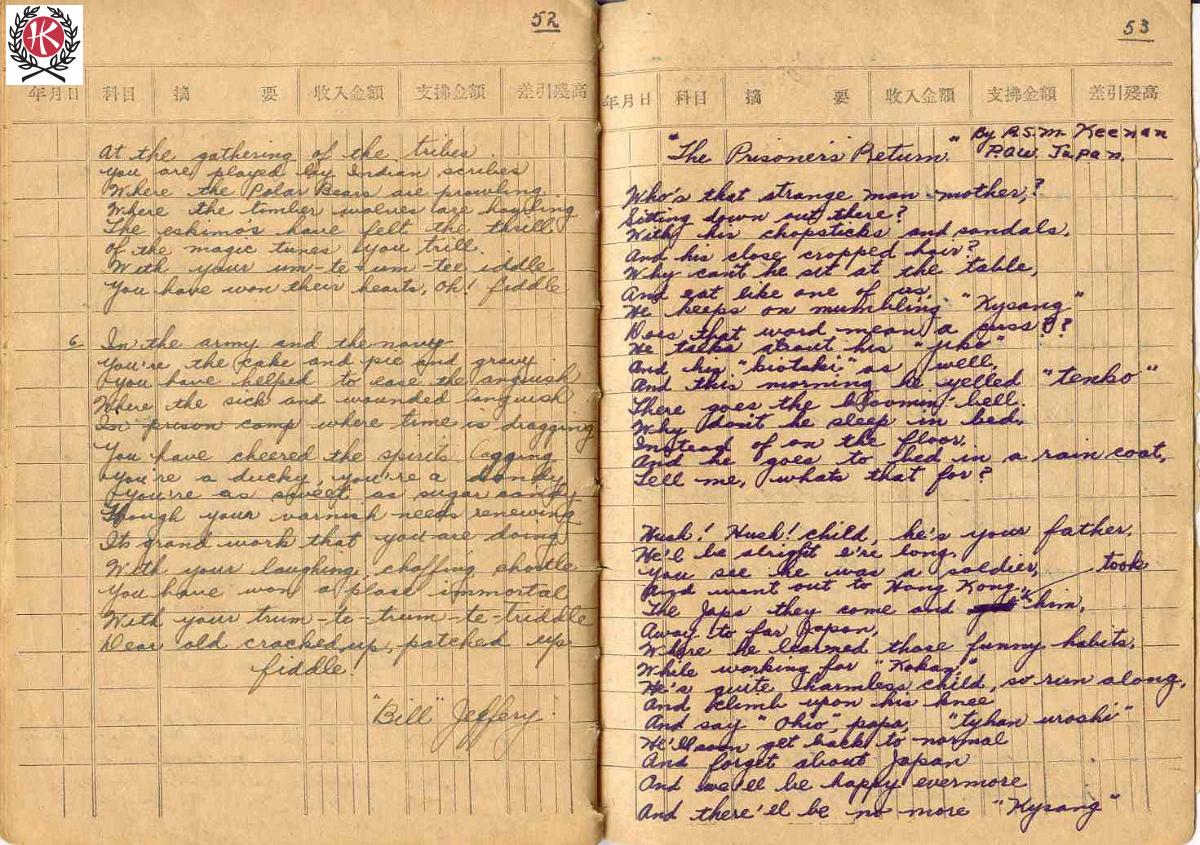 HK
52
年月日 科目 摘 要 收入金額 支拂金額 差引殘高
At the gathering of the tribes.
You are played by Indian scribes
Where the Polar Bears are prowling.
Where the timber wolves are howling
The eskimos have felt the thrill.
Of the magic tunes you trill.
With your um-te-um-tee iddle
You have won their hearts, Oh! fiddle
6. In the army and the navy
You're the cake and pie and gravy
You have helped to ease the anguish
Where the sick and wounded languish
In prison camp where time is dragging
You have cheered the spirits lagging
You're a ducky, you're a dandy
You're as sweet as sugar candy
Though your varnish needs renewing
Its grand work that you are doing
With your laughing, chaffing
You have won a place immortal
With your trum-te-trum-te-triddle
Dear old cracked up, patched up
fiddle.
"Bill" Jeffery.
53
年月日 科目 摘 要 收入金額 支拂金額 差引殘高
"The Prisoners Return." By R.S.M. Keenan
P.O.W. Japan.
Who's that strange man mother,?
Sitting down out there?
With his chopsticks and sandals,
And his close cropped hair?
Why can't he sit at the table,
And eat like one of us,
He keeps on mumbling "Kysang"
Does that word mean a puss??
He talks about his "
And his "biotaki" as well,
And this morning he yelled "tenko"
There goes the bloomin' bell.
Why don't he sleep in bed,
Instead of on the floor,
And he goes to bed in a rain coat,
Tell me, whats that for?
Hush! Hush! child, he's your father,
He'll be alright e're long,
You see he was a soldier,
And went out to Hong Kong.
The Japs they come and took him,
Away to far Japan,
Where he learned those funny habits,
While working for "Kokan,"
He's quite harmless child, so run along,
And klimb upon his knee
And say "Ohio", papa, "tyhan uroshi"
We'll soon get back to normal
And forget about Japan
And we'll be happy evermore
And there'll be no more "Kysang"